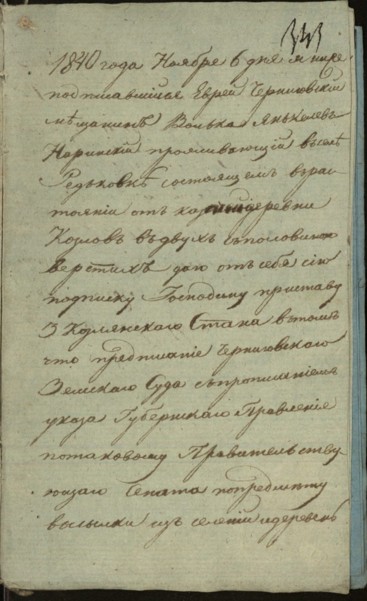 343
1840 года Ноября 6 дня я ниже
подписавшийся Еврей Черниговский
мѣщанинъ Волька Янкелевъ
Наринскій проживающій въ селѣ
Редьковкѣ состоящемъ въ раз
тояніи отъ деревни
въ двухъ съ половиною
верстахъ даю отъ себя сію
подписку Господину приставу
3 Стана въ томъ
что предписаніе Черниговскаго
Земскаго Суда съ прописаніемъ
указа Губернскаго Правленія
потаковому Правительству
ющаго Сената попредмѣту
высылки изъ селеній и деревень